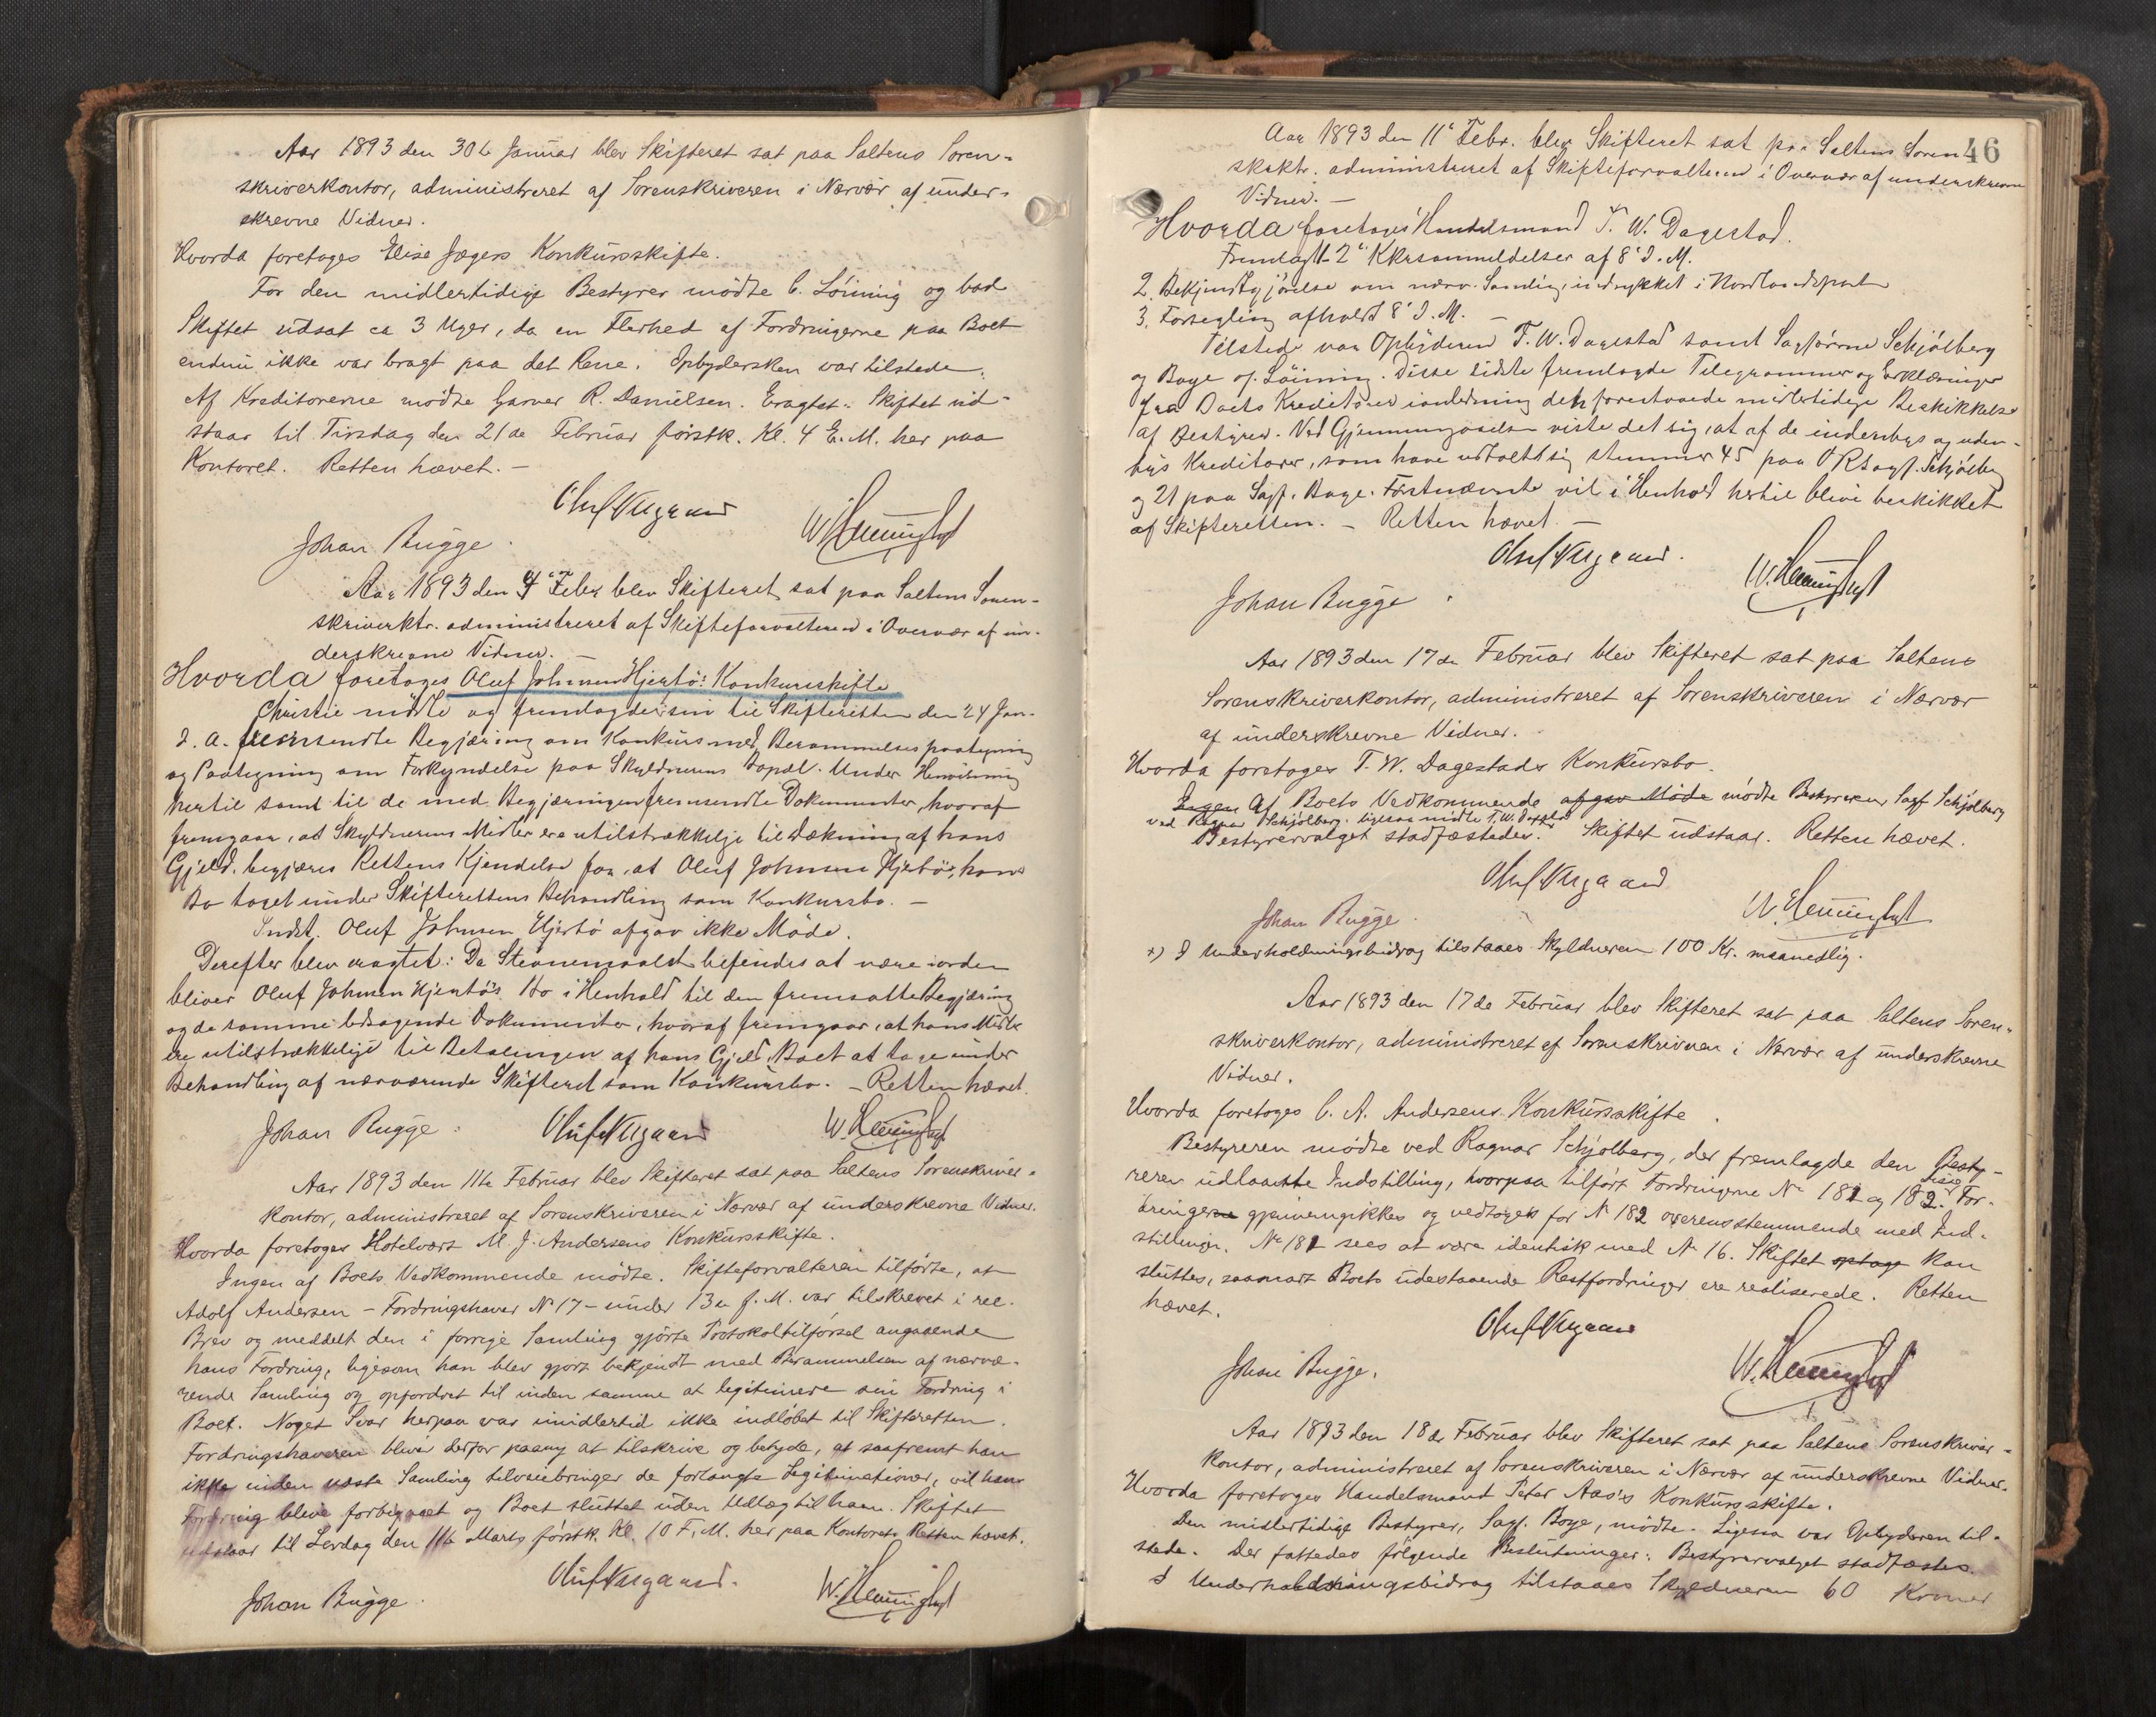 Aar 1893 den 30te Januar blev Skifteret sat paa Saltens Soren-
skriverkontor, administreret af Sorenskriveren i Nærvær af under-
skrevne Vidner.
Hvorda foretoges Elise Jægers Konkursskifte.
For den midlertidige Bestyrer mödte C. Löining og bad
Skiftet udsat ca 3 Uger, da en Flerhed af Fordringerne paa Boet
endnu ikke var bragt paa det Rene. Opbydersken var tilstede.
Af Kreditorerne mödte Garver R. Danielsen. Eragtet: Skiftet ud-
staar til Tirsdag den 21de Februar förstk. Kl. 4 E.M. her paa
Kontoret. Retten hævet. -
Johan Bugge.
Aar 1893 den 4' Febr blev Skifteret sat paa Saltens Soren-
skriverktr. administreret af Skifteforvalteren i Overvær af un-
derskrevne Vidner. -
Hvorda foretoges Oluf Johnsen Hjertö's Konkursskifte
Christie mödte og fremlagde sin til Skifteretten den 24 Jan.
d. A. fremsendte Begjæring om Konkurs med Berammelsespaategning
og Paategning om Forkyndelse paa Skyldnerens Bopæl. Under Henvisning
hertil samt til de med Begjæringen fremsendte Dokumenter, hvoraf
fremgaar, at Skyldnerens Midler ere utilstrækkelige til Dækning af hans
Gjeld, begjæres Rettens Kjendelse for, at Oluf Johnsen Hjertö's, hans
Bo taget under Skifterettens Behandling som Konkursbo. -
Indst. Oluf Johnsen Hjertö afgav ikke Möde.
Derefter blev eragtet: Da Stevnemaalet befindes at være i orden
bliver Oluf Johnsen Hjertö's Bo i Henhold til den fremsatte Begjæring
og de samme ledsagende Dokumenter, hvoraf fremgaar, at hans Midler
ere utilstrækkelige til Betalingen af hans Gjeld, Boet at tage under
Behandling af nærværende Skifteret som Konkursbo. - Retten hævet.
Johan Bugge.
Aar 1893 den 11te Februar blev Skifteret sat paa Saltens Sorenskriver-
kontor, administreret af Sorenskriveren i Nærvær af underskrevne Vidner.
Hvorda foretoges Hotelvært M. J. Andersens Konkursskifte.
Ingen af Boets Vedkommende mödte. Skifteforvalteren tilförte, at
Adolf Andersen - Fordringshaver No 17 - under 13de f. M. var tilskrevet i rec.
Brev og meddelt den i forrige Samling gjorte Protokoltilförsel angaaende
hans Fordring, ligesom han blev gjort bekjendt med Berammelsen af nærvæ-
rende Samling og opfordret til inden samme at legitimere sin Fordring i
Boet. Noget Svar herpaa var imidlertid ikke indlöbet til Skifteretten.
Fordringshaveren bliver derfor paany at tilskrive og betyde, at saafremt han
ikke inden næste Samling tilveiebringer de forlangte Legitimationer, vil hans
Fordring blive forbigaaet og Boet sluttet uden Udlæg til ham. Skiftet
udstaar til Lørdag den 11te Marts förstk. Kl. 10 F.M. her paa Kontoret. Retten hævet.
Johan Bugge.
46
Aar 1893 den 11' Febr. blev Skifteret sat paa Saltens Soren
skrktr. administreret af Skifteforvalteren i Overvær af underskrevne
Vidner. -
Hvorda foretoges Handelsmand T. W. Dagestad.
Fremlagt af 8' d. M.
2. Bekjendtgjörelse om nærv. Samling, indrykket i Nordlandsposten
3. Forsegling afholdt 8' d. M. -
Tilstede var Opbyderen T. W. Dagestad samt Sagförerne Schjölberg
og Boye og Löining. Disse sidste fremlagde Telegrammer og Erklæringer
fra Boets Kreditorer i anledning den forestaaende midlertidige Beskikkelse
af Bestyrer. Ved Gjennemgaaelsen viste det sig, at af de indenbys og uden-
bys Kreditorer, som have udtalt sig stemmer 45 paa ORSagf. Schjölberg
og 21 paa Sagf. Boye. Förstnævnte vil i Henhold hertil blive beskikket
af Skifteretten. - Retten hævet. -
Johan Bugge.
Aar 1893 den 17de Februar blev Skifteret sat paa Saltens
Sorenskriverkontor, administreret af Sorenskriveren i Nærvær
af underskrevne Vidner.
Hvorda foretoges T. W. Dagestads Konkursbo.
Ingen Af Boets Vedkommende afgav Möde mödte Bestyreren, Sagf Schjölberg
ved Ragnar Schjölberg. ligesaa mödte T. W. Dagestad
Bestyrervalget stadfæstedes. Skiftet udstaar. Retten hævet.
Johan Bugge.
x) I Underholdningsbidrag tilstaaes Skyldneren 100 Kr. maanedlig.
Aar 1893 den 17de Februar blev Skifteret sat paa Saltens Soren-
skriverkontor, administreret af Sorenskriveren i Nærvær af underskrevne
Vidner.
Hvorda foretoges C. A. Andersens Konkursskifte.
Bestyreren mödte ved Ragnar Schjölberg, der fremlagde den Besty-
reren udlaante Indstilling, hvorpaa tilfört Fordringerne No 181 og 182. Disse For-
dringer gjennemgikkes og vedtoges for No 182 overensstemmende med Ind-
stillingen. No 181 sees at være identisk med No 16. Skiftet optage kan
sluttes, saasnart Boets udestaaende Restfordringer ere realiserede. Retten
hævet.
Johan Bugge.
Aar 1893 den 18de Februar blev Skifteret sat paa Saltens Sorenskriver-
kontor, administreret af Sorenskriveren i Nærvær af underskrevne Vidner.
Hvorda foretoges Handelsmand Peter Aas's Konkursskifte.
Den midlertidige Bestyrer, Sagf. Boye, mödte. Ligesaa var Opbyderen til-
stede. Der fattedes fölgende Beslutninger: Bestyrervalget stadfæstes.
I Underholdningsbidrag tilstaaes Skyldneren 60 Kroner